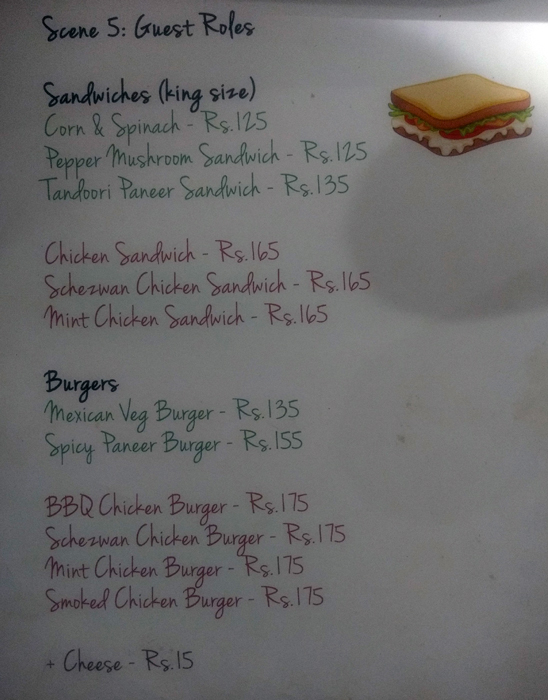 Scene 5: Guest Roles
Sandwiches (king size)
Corn & Spinach - Rs.125
Pepper Mushroom Sandwich - Rs.125
Tandoori Paneer Sandwich - Rs.135
Chicken Sandwich - Rs.165
Schezwan Chicken Sandwich - Rs.165
Mint Chicken Sandwich - Rs.165
Burgers
Mexican Veg Burger - Rs.135
Spicy Paneer Burger - Rs.155
BBQ Chicken Burger - Rs.175
Schezwan Chicken Burger - Rs.175
Mint Chicken Burger - Rs.175
Smoked Chicken Burger - Rs.175
+ Cheese - Rs.15